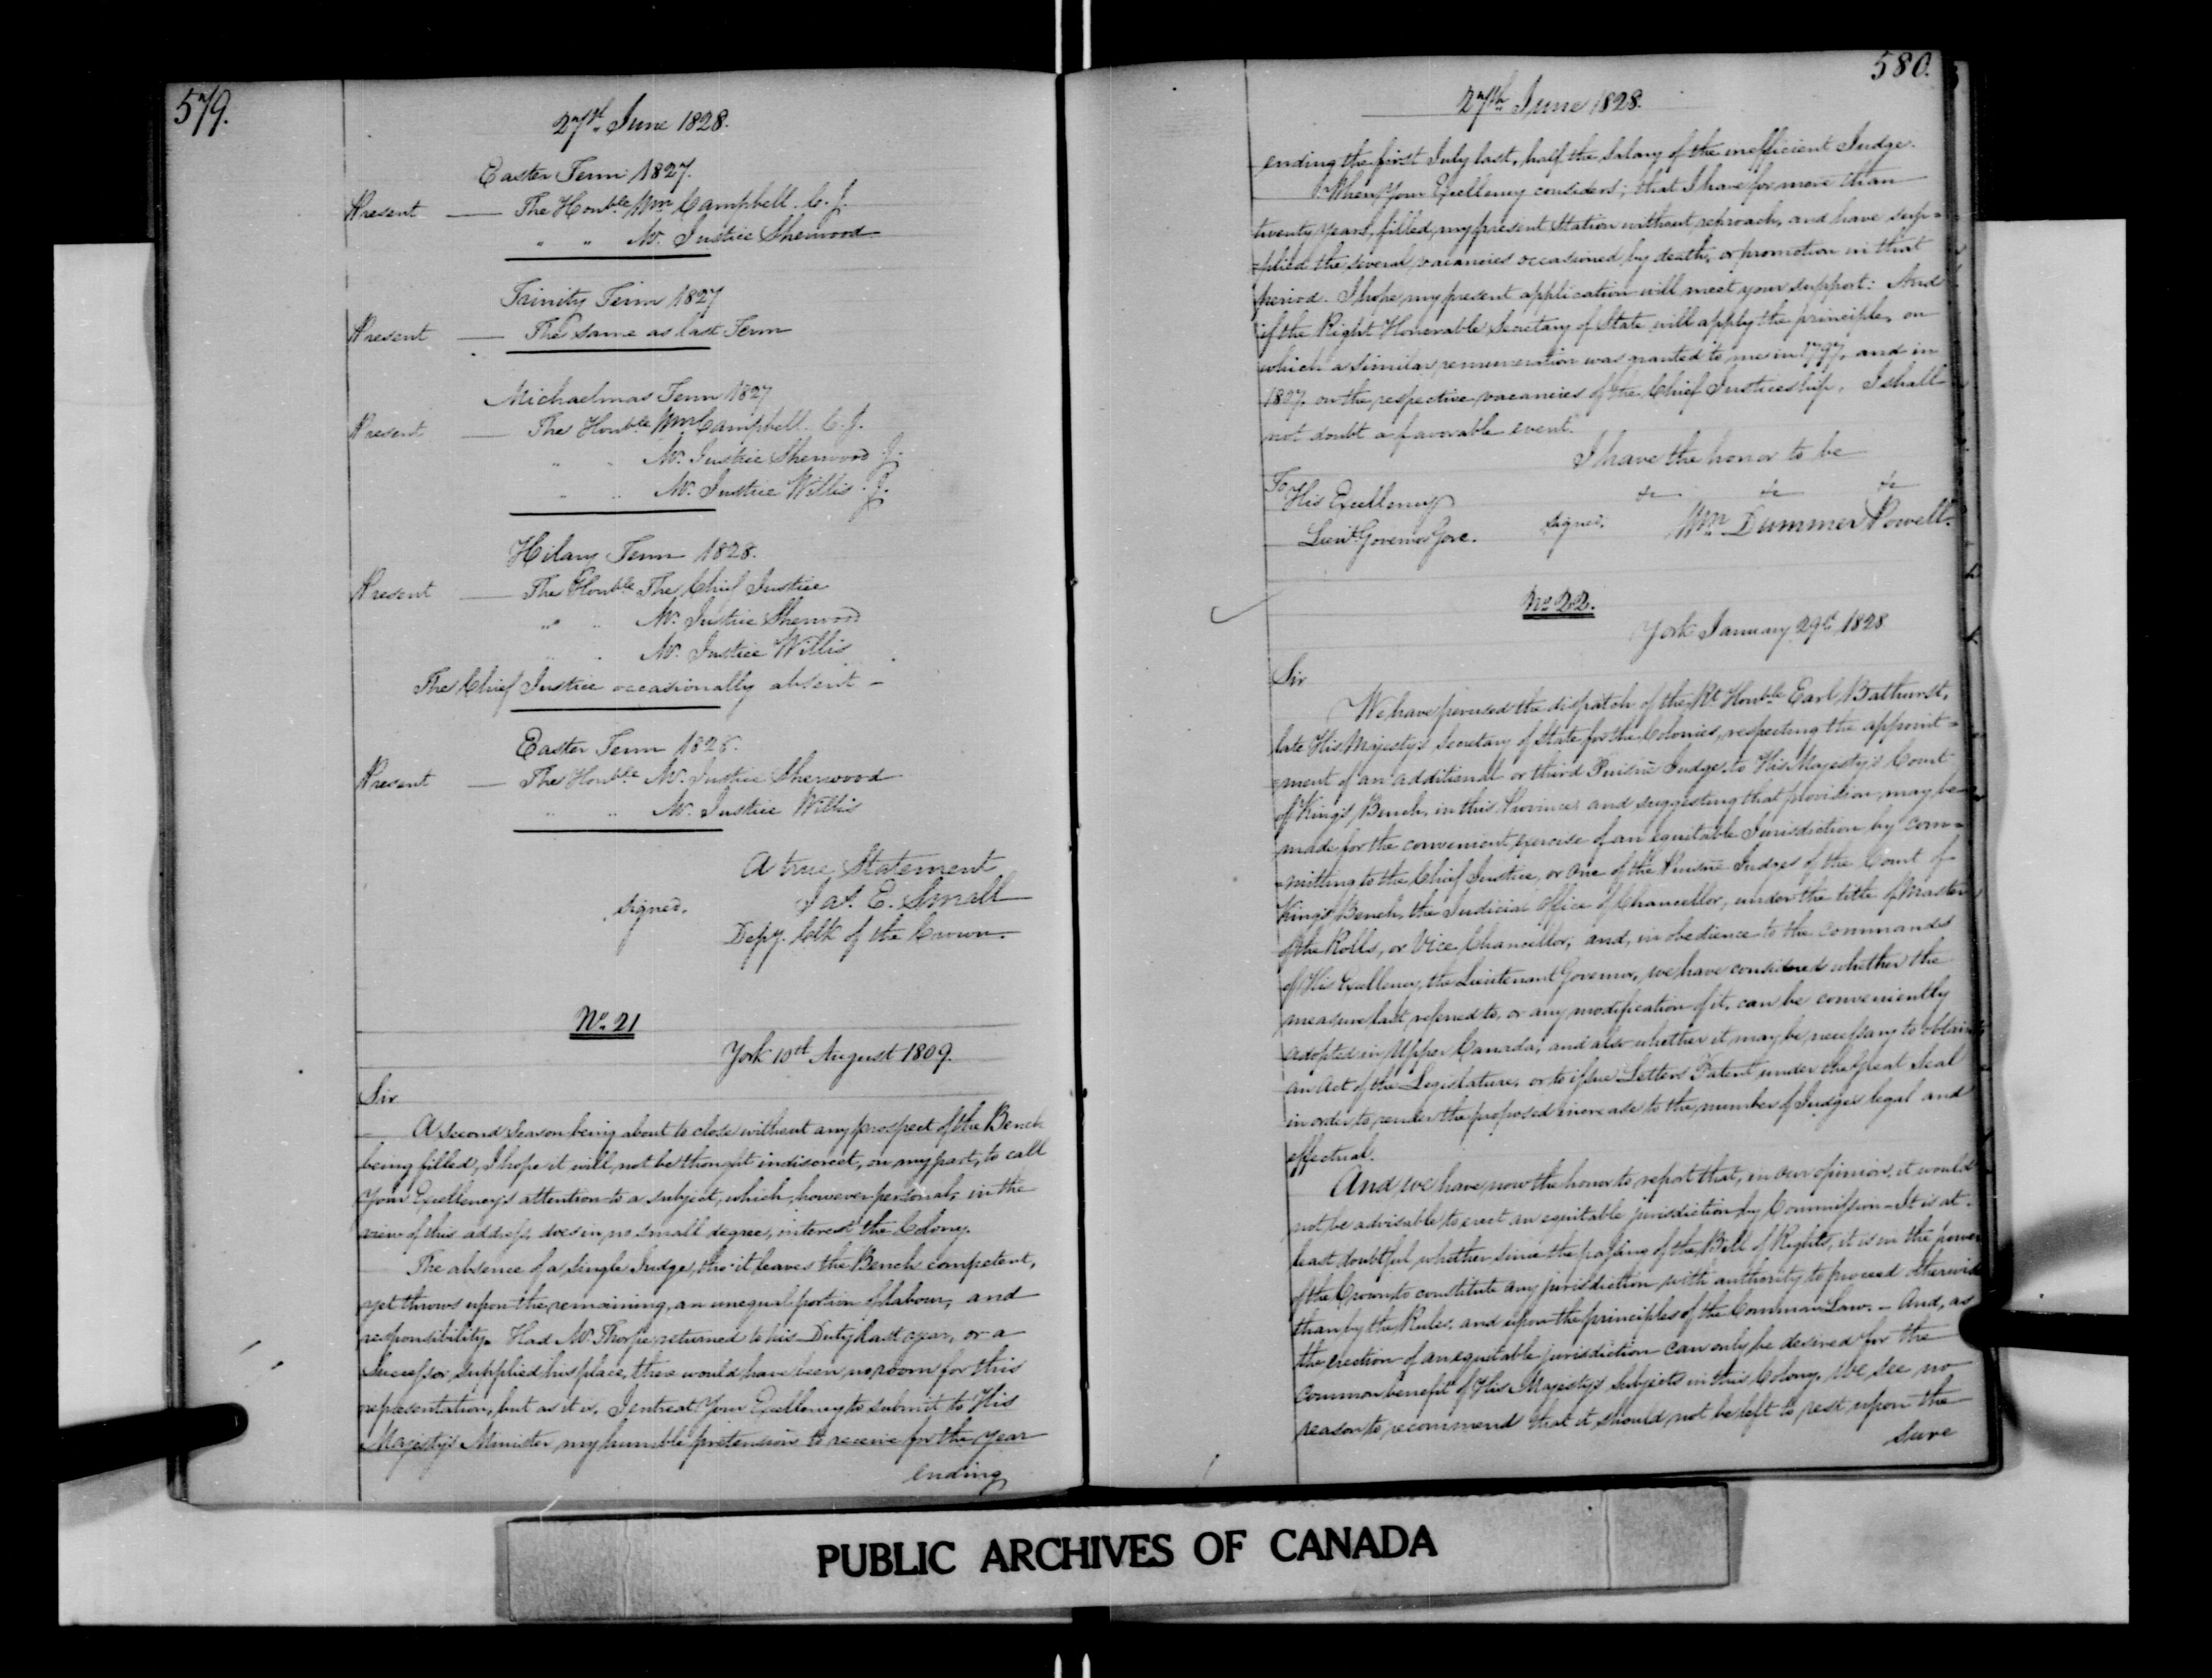 579.
27th June 1828.
Easter Term 1827.
Present — The Honble Wm Campbell. C. J.
" " Mr. Justice Sherwood
Trinity Term 1827
Present — The same as last Term
Michaelmas Term 1827
Present — The Honble Wm Campbell. C. J.
" " Mr. Justice Sherwood. J.
" " Mr. Justice Willis. J.
Hilary Term 1828.
Present — The Honble The Chief Justice
" " Mr. Justice Sherwood
" " Mr. Justice Willis
The Chief Justice occasionally absent –
Easter Term 1828.
Present — The Honble Mr. Justice Sherwood
" " Mr. Justice Willis
A true Statement
signed. Jas. E. Small
Depy. Clk of the Crown.
No. 21
York 10th August 1809.
Sir
A second season being about to close without any prospect of the Bench
being filled, I hope it will not be thought indiscreet, on my part, to call
Your Excellency's attention to a subject, which, however personal, in the
view of this address, does in no small degree, interest the Colony.
The absence of a single Judge, tho' it leaves the Bench competent,
yet throws upon the remaining, an unequal portion of labour, and
responsibility. Had Mr. Thorpe returned to his Duty last year, or a
Successor supplied his place, there would have been no room for this
representation, but as it is, I entreat Your Excellency to submit to His
Majesty's Minister my humble pretension to receive for the year
ending
580.
27th June 1828.
ending the first July last, half the salary of the inefficient Judge.
When Your Excellency considers, that I have for more than
twenty years, filled, my present Station without reproach, and have sup=
=plied the several vacancies occasioned by death, or promotion in that
period. I hope, my present application will meet your support: And
if the Right Honorable Secretary of State will apply the principle, on
which a similar remuneration was granted to me in 1797, and in
1807, on the respective vacancies of the Chief Justiceship, I shall
not doubt a favorable event.
I have the honor to be
&c &c &c
To
His Excellency
Lieut. Governor Gore.
signed. Wm Dummer Powell.
No. 22.
York January 29th 1828
Sir
We have perused the dispatch of the Rt. Honble Earl Bathurst,
late His Majesty's Secretary of State for the Colonies, respecting the appoint=
=ment of an additional or third Puisne Judge, to His Majesty's Court
of King's Bench, in this Province and suggesting that provision may be
made for the convenient exercise of an equitable Jurisdiction by com=
=mitting to the Chief Justice, or one of the Puisne Judges of the Court of
King's Bench, the Judicial Office of Chancellor, under the title of Master
of the Rolls, or Vice Chancellor, and, in obedience to the commands
of His Excellency, the Lieutenant Governor, we have considered whether the
measure last referred to, or any modification of it, can be conveniently
adopted in Upper Canada, and also whether it may be necessary to obtain
an Act of the Legislature, or to issue Letters Patent under the Great Seal
in order to render the proposed increase to the number of Judges legal and
effectual.
And we have now the honor to report that, in our opinion, it would
not be advisable to erect an equitable jurisdiction by Commission – It is at
least doubtful whether since the passing of the Bill of Rights, it is in the power
of the Crown to constitute any jurisdiction with authority to proceed otherwise
than by the Rules, and upon the principles of the Common Law. – And, as
the erection of an equitable jurisdiction can only be desired for the
common benefit of His Majesty's Subjects in this Colony, We see no
reason to recommend that it should not be left to rest upon the
sure
PUBLIC ARCHIVES OF CANADA